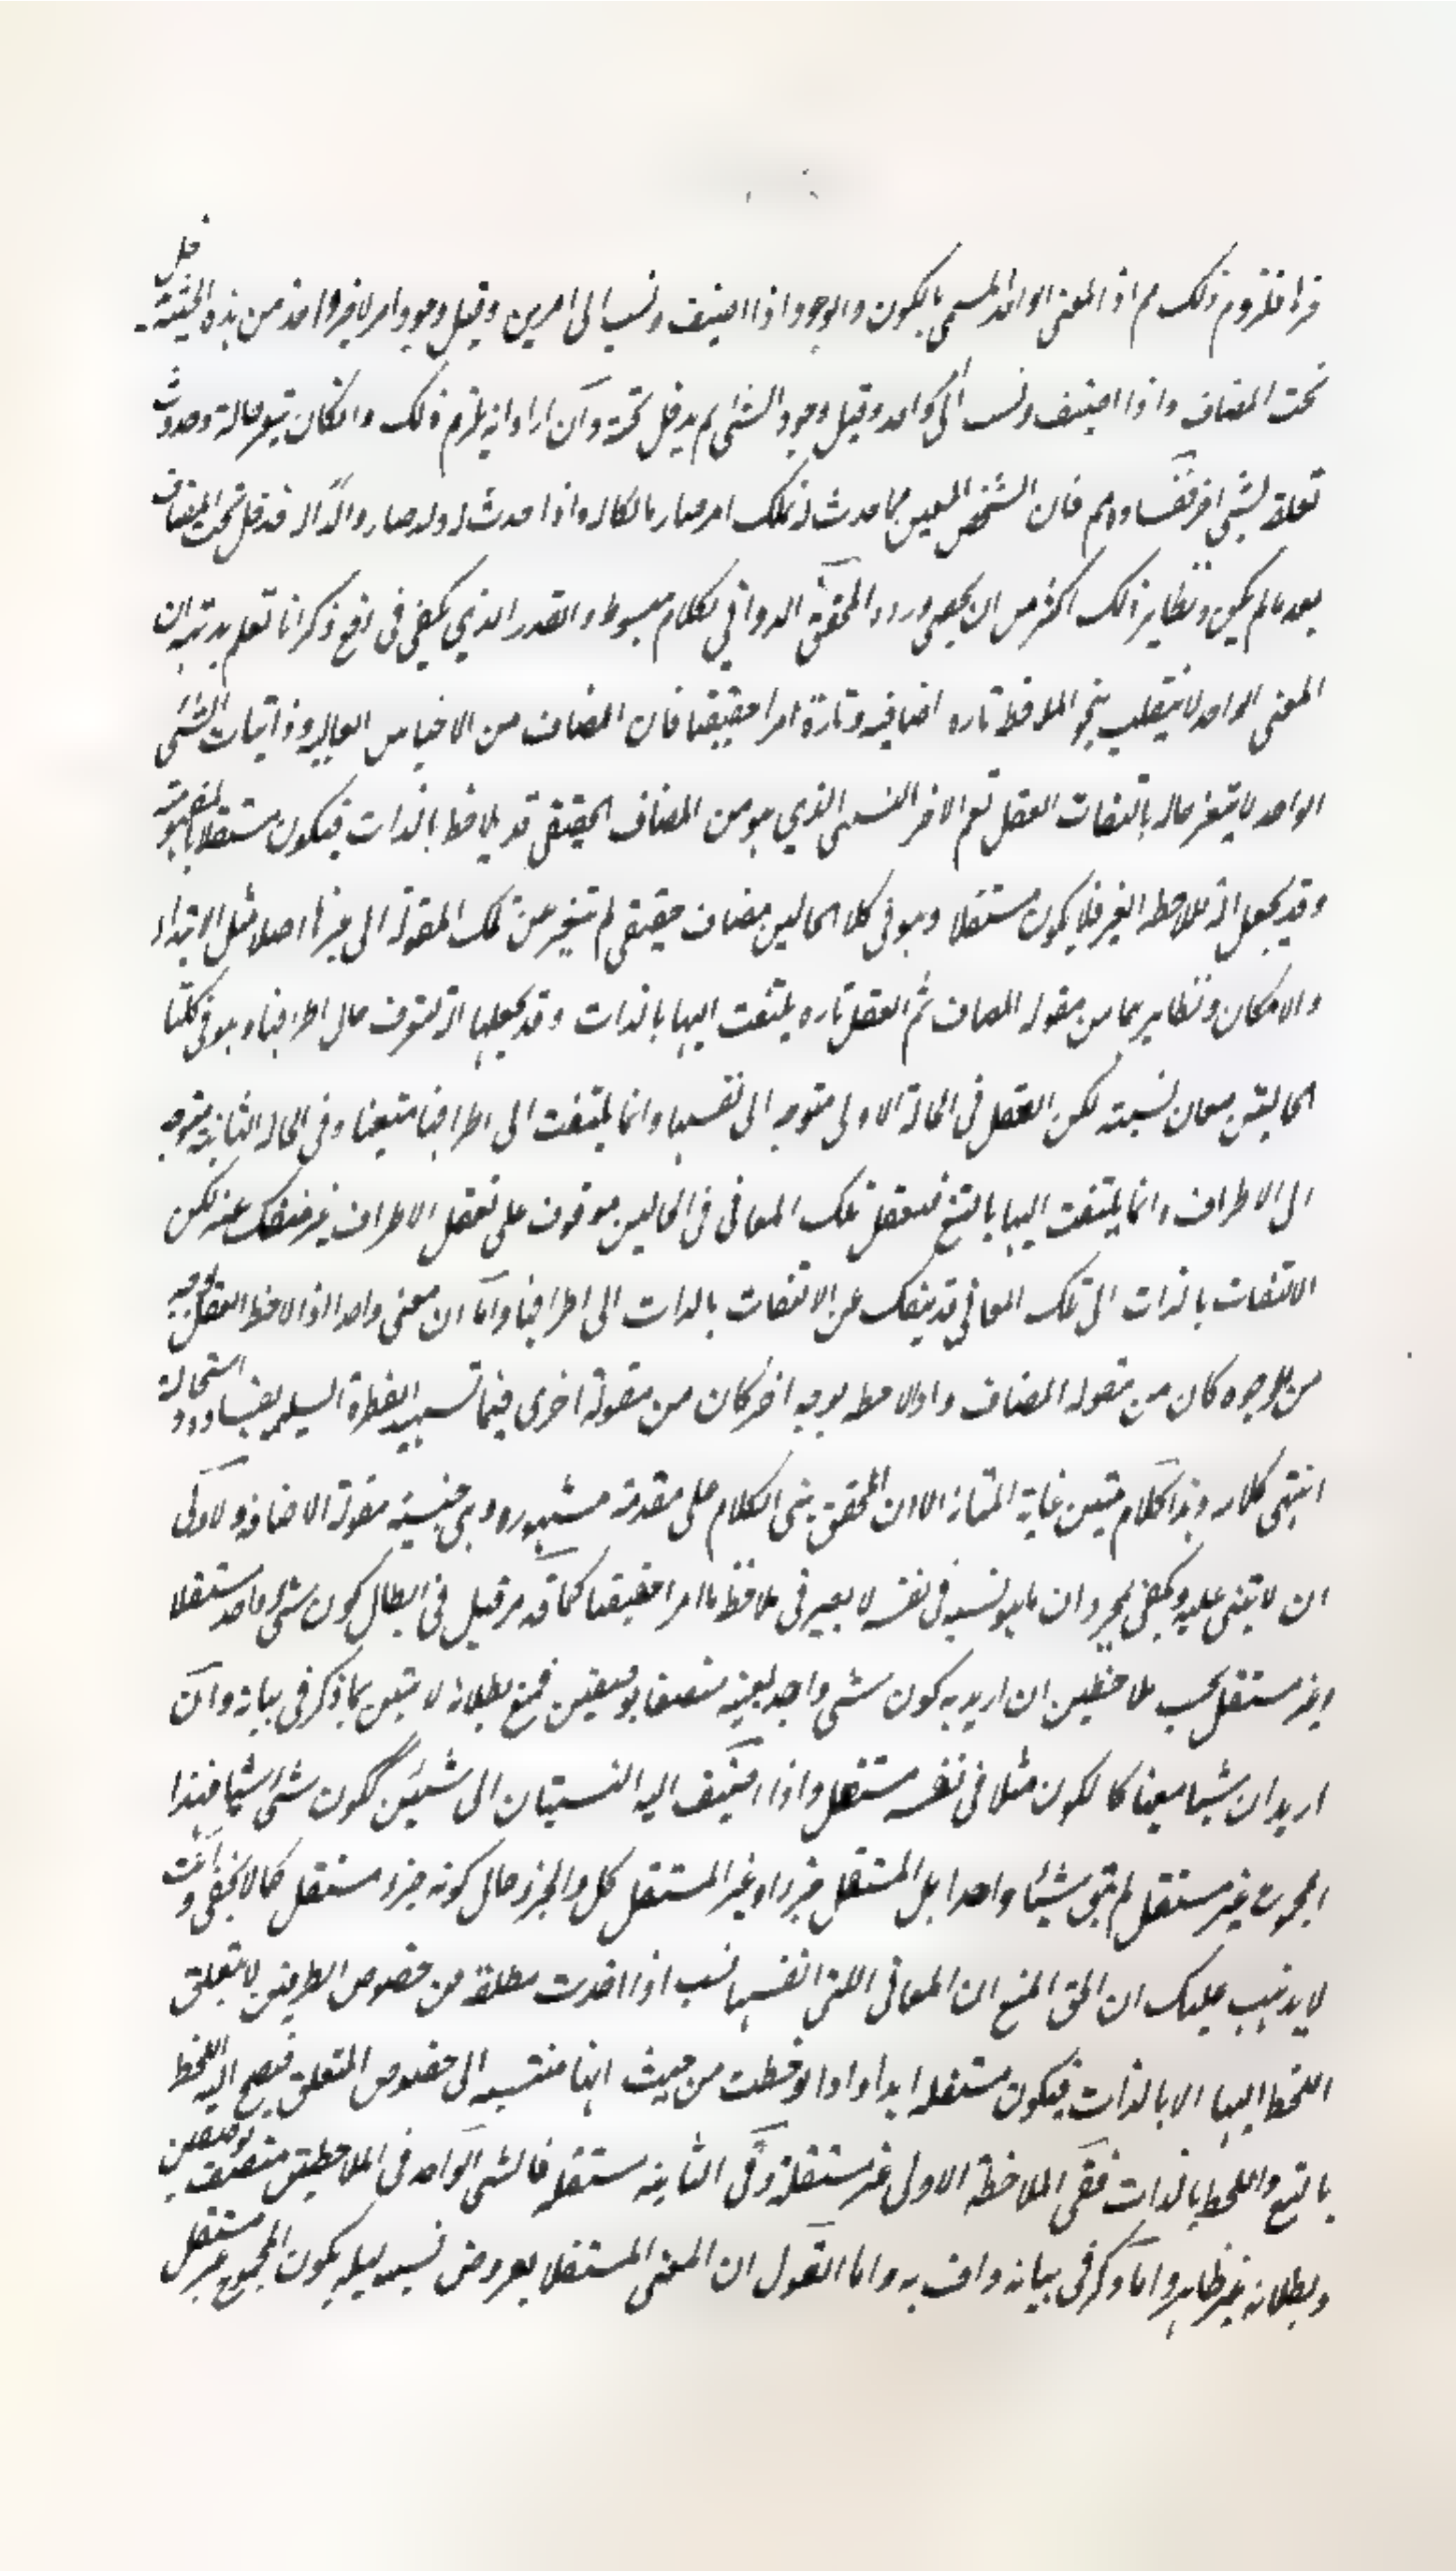 فرا فلزوم ذلك م اذ المعنى الواحد المسمى بالكون والوجود اذا اضيف ونسب الى امرين وقيل وجود امر لامر واحد من هذه الحيثية دخل
تحت المضاف واذا اضيف ونسب الى واحد وقيل وجود الشئ لم يدخل تحته وان اراد انه يلزم ذلك وان كان بتغير حاله وحدوث
تعلقه بشئ اخر ففساده م فان الشخص المعين مما حدث له تملك امر صار مالكا له واذا حدث له ولد صار والدا له فدخل تحت المضاف
بعد ما لم يكن ونظاير ذلك اكثر من ان يحصى ورده المحقق الدواني بكلام مبسوط والقدر الذي يكفي في دفع ذكر انا نعلم بديهة ان
المعنى الواحد لا ينقلب بنحو الملاحظة تاره اضافيه وتارة امرا حقيقيا فان المضاف من الاجناس العاليه وذاتيات الشئ
الواحد لا يتغير حاله بالتفات العقل نعم الامر النسبي الذي هو من المضاف الحقيقي قد يلاحظ بالذات فيكون مستقلا بالمفهومية
وقد يجعل الة لملاحظه الغير فلا يكون مستقلا وهو في كلا الحالين مضاف حقيقي لم يتغير عن تلك المقولة الى غيرها اصلا مثل الابتداء
والامكان ونظايرهما من مقوله المضاف ثم العقل تاره يلتفت اليها بالذات وقد يجعلها الة لتعرف حال اطرافها وهو في كلتا
الحالتين معان نسبية لكن العقل في الحالة الاولى متوجه الى نفسها وانما يلتفت الى اطرافها تبعا وفي الحاله الثانية متوجه
الى الاطراف وانما يلتفت اليها بالتبع فتعقل تلك المعاني في الحالين موقوف على تعقل الاطراف غير منفك عنه لكن
الالتفات بالذات الى تلك المعاني قد ينفك عن الالتفات بالذات الى اطرافها واما ان معنى واحدا اذا لاحظ العقل بوجه
من الوجوه كان من مقوله المضاف واذا لاحظه بوجه اخر كان من مقولة اخرى فمما تشهد الفطرة السليمه بفساده واستحالته
انتهى كلامه وهذا كلام متين غاية المتانة الا ان المحقق بنى الكلام على مقدمة مشهوره وهي جنسية مقولة الاضافة والاولى
ان لا يبنى عليه ويكفي مجرد ان ما هو نسبة في نفسه لا يصير في ملاحظة ما امرا حقيقيا كما قد مر قيل في ابطال كون شئ واحد مستقلا
وغير مستقل بحسب ملاحظتين ان اريد به كون شئ واحد بعينه متصفا بوصفين فمنع بطلانه لا يتبين بما ذكر في بيانه وان
اريد ان شيئا معينا كالكون مثلا في نفسه مستقل واذا اضيف اليه النسبتان الى شيئين ككون شئ شيئا فهذا
المجموع غير مستقل لم يبق شيئا واحدا بل المستقل جزء او غير المستقل كل والجزء حال كونه جزء مستقل كما لا يخفى وانت
لا يذهب عليك ان الحق المنع ان المعاني اللتي انفسها نسب اذا اخذت مطلقة من خصوص الطرفين لا يتعلق
اللحظ اليها الا بالذات فيكون مستقله ابدا واذا لوحظت من حيث انها منتسبه الى خصوص المتعلق فيصح اليه اللحظ
بالتبع واللحظ بالذات ففي الملاحظة الاولى غير مستقلة وفي الثانيه مستقله فالشئ الواحد في الملاحظتين متصف بوصفين
وبطلانه غير ظاهر واما ذكر في بيانه واف به واما القول ان المعنى المستقل لا بعروض نسبه اليه يكون المجموع غير مستقل